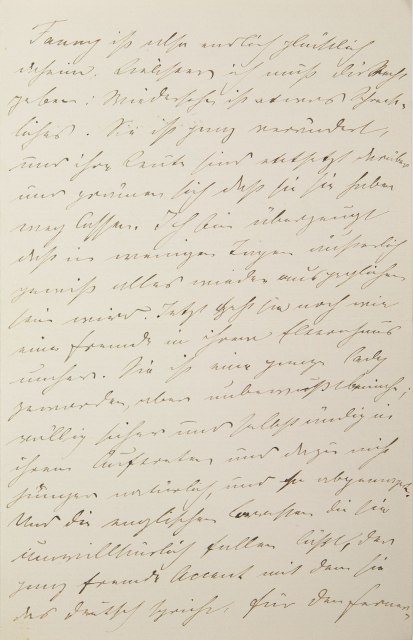 Fanny ist also endlich glücklich
daheim. ich muß dir Recht
geben: Wiedersehen ist etwas Schreck-
liches. Sie ist ganz verändert,
und ihre Leute sind entsetzt darüber
und grämen sich daß sie sie haben
weg lassen. Ich bin überzeugt
daß in wenigen Tagen äußerlich
gewiß alles wieder ausgeglichen
sein wird. Jetzt geht sie noch wie
eine Fremde in ihrem Elternhaus
umher. Sie ist eine ganze Lady
geworden, aber unbewußt
völlig sicher und selbständig in
ihrem Auftreten und dazu
natürlich, und so
Und die englischen die sie
unwillkürlich fallen läßt, der
ganz fremde Accent mit dem sie
das deutsch spricht. Für den